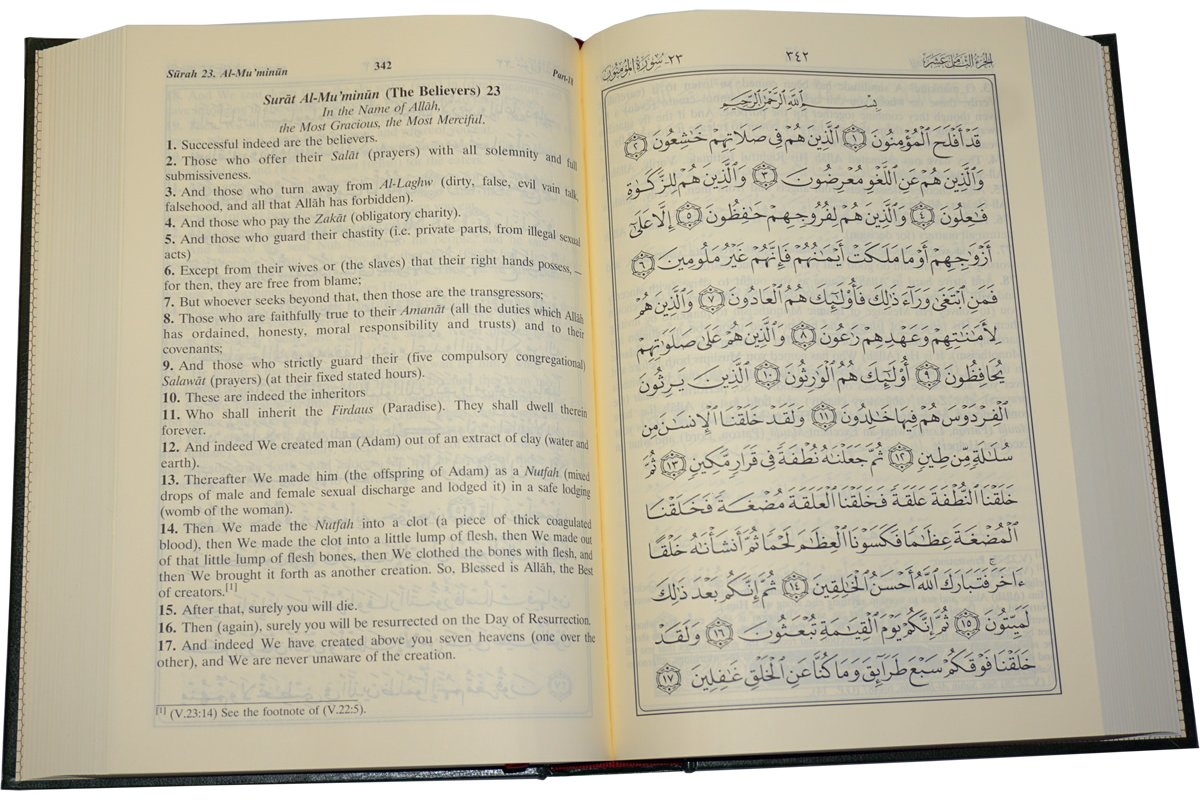 Sūrah 23. Al-Mu'minūn
342
Part-18
Surāt Al-Mu'minūn (The Believers) 23
In the Name of Allāh,
the Most Gracious, the Most Merciful.
1. Successful indeed are the believers.
2. Those who offer their Salāt (prayers) with all solemnity and full
submissiveness.
3. And those who turn away from Al-Laghw (dirty, false, evil vain talk,
falsehood, and all that Allāh has forbidden).
4. And those who pay the Zakāt (obligatory charity).
5. And those who guard their chastity (i.e. private parts, from illegal sexual
acts)
6. Except from their wives or (the slaves) that their right hands possess, —
for then, they are free from blame;
7. But whoever seeks beyond that, then those are the transgressors;
8. Those who are faithfully true to their Amanāt (all the duties which Allāh
has ordained, honesty, moral responsibility and trusts) and to their
covenants;
9. And those who strictly guard their (five compulsory congregational)
Salawāt (prayers) (at their fixed stated hours).
10. These are indeed the inheritors
11. Who shall inherit the Firdaus (Paradise). They shall dwell therein
forever.
12. And indeed We created man (Adam) out of an extract of clay (water and
earth).
13. Thereafter We made him (the offspring of Adam) as a Nutfah (mixed
drops of male and female sexual discharge and lodged it) in a safe lodging
(womb of the woman).
14. Then We made the Nutfah into a clot (a piece of thick coagulated
blood), then We made the clot into a little lump of flesh, then We made out
of that little lump of flesh bones, then We clothed the bones with flesh, and
then We brought it forth as another creation. So, Blessed is Allāh, the Best
of creators.[1]
15. After that, surely you will die.
16. Then (again), surely you will be resurrected on the Day of Resurrection.
17. And indeed We have created above you seven heavens (one over the
other), and We are never unaware of the creation.
[1] (V.23:14) See the footnote of (V.22:5).
الجزء الثامن عشر
٣٤٢
٢٣- سورة المؤمنون
بِسْمِ ٱللَّهِ ٱلرَّحْمَٰنِ ٱلرَّحِيمِ
قَدْ أَفْلَحَ ٱلْمُؤْمِنُونَ ١ ٱلَّذِينَ هُمْ فِى صَلَاتِهِمْ خَٰشِعُونَ ٢
وَٱلَّذِينَ هُمْ عَنِ ٱللَّغْوِ مُعْرِضُونَ ٣ وَٱلَّذِينَ هُمْ لِلزَّكَوٰةِ
فَٰعِلُونَ ٤ وَٱلَّذِينَ هُمْ لِفُرُوجِهِمْ حَٰفِظُونَ ٥ إِلَّا عَلَىٰٓ
أَزْوَٰجِهِمْ أَوْ مَا مَلَكَتْ أَيْمَٰنُهُمْ فَإِنَّهُمْ غَيْرُ مَلُومِينَ ٦
فَمَنِ ٱبْتَغَىٰ وَرَآءَ ذَٰلِكَ فَأُو۟لَٰٓئِكَ هُمُ ٱلْعَادُونَ ٧ وَٱلَّذِينَ هُمْ
لِأَمَٰنَٰتِهِمْ وَعَهْدِهِمْ رَٰعُونَ ٨ وَٱلَّذِينَ هُمْ عَلَىٰ صَلَوَٰتِهِمْ
يُحَافِظُونَ ٩ أُو۟لَٰٓئِكَ هُمُ ٱلْوَٰرِثُونَ ١٠ ٱلَّذِينَ يَرِثُونَ
ٱلْفِرْدَوْسَ هُمْ فِيهَا خَٰلِدُونَ ١١ وَلَقَدْ خَلَقْنَا ٱلْإِنسَٰنَ مِن
سُلَٰلَةٍ مِّن طِينٍ ١٢ ثُمَّ جَعَلْنَٰهُ نُطْفَةً فِى قَرَارٍ مَّكِينٍ ١٣ ثُمَّ
خَلَقْنَا ٱلنُّطْفَةَ عَلَقَةً فَخَلَقْنَا ٱلْعَلَقَةَ مُضْغَةً فَخَلَقْنَا
ٱلْمُضْغَةَ عِظَٰمًا فَكَسَوْنَا ٱلْعِظَٰمَ لَحْمًا ثُمَّ أَنشَأْنَٰهُ خَلْقًا
ءَاخَرَ ۚ فَتَبَارَكَ ٱللَّهُ أَحْسَنُ ٱلْخَٰلِقِينَ ١٤ ثُمَّ إِنَّكُم بَعْدَ ذَٰلِكَ
لَمَيِّتُونَ ١٥ ثُمَّ إِنَّكُمْ يَوْمَ ٱلْقِيَٰمَةِ تُبْعَثُونَ ١٦ وَلَقَدْ
خَلَقْنَا فَوْقَكُمْ سَبْعَ طَرَآئِقَ وَمَا كُنَّا عَنِ ٱلْخَلْقِ غَٰفِلِينَ ١٧